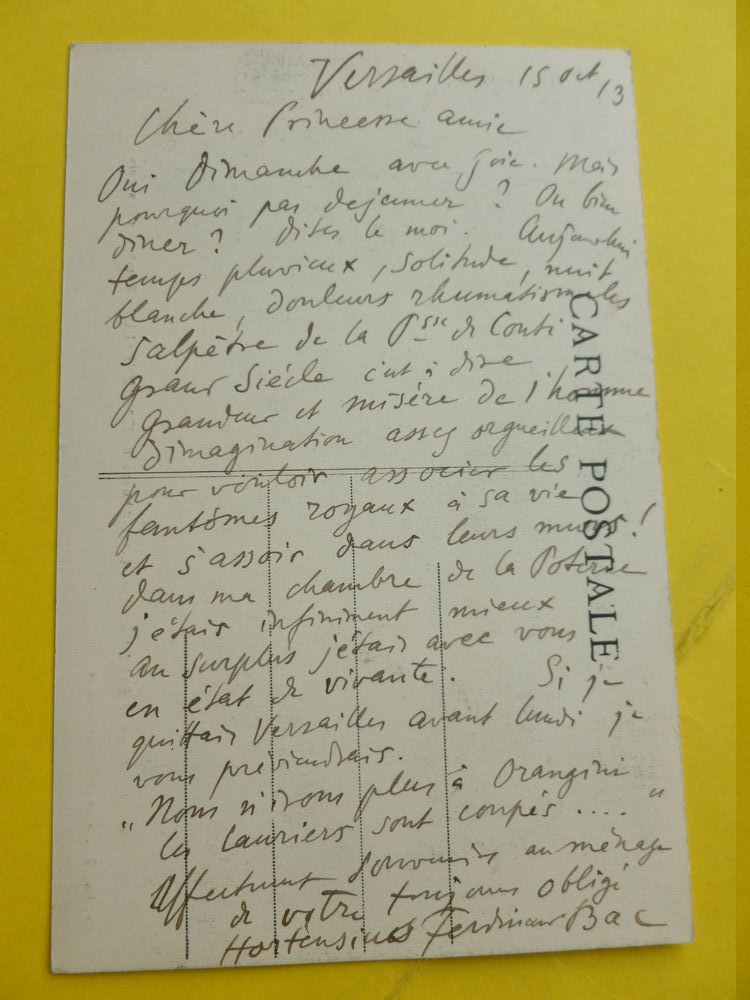 Versailles 15 oct 13
Chère Princesse amie
Oui Dimanche avec joie. Mais
pourquoi pas dejeuner ? Ou bien
diner ? Dites le moi. Aujourdhui
temps pluvieux, solitude, nuit
blanche, douleurs rhumatismales
Salpêtre de la Psse de Conti
Grand Siécle c'est à dire
Grandeur et misére de l'homme
d'imagination assez orgueilleux
pour vouloir associer les
fantômes royaux à sa vie
et s'assoir dans leurs murs !
dans ma chambre de la Poterne
j'étais infiniment mieux
au surplus j'étais avec vous
en état de vivante. Si je
quittais Versailles avant lundi je
vous préviendrais.
"Nous n'irons plus à Orangini
les lauriers sont coupés .... "
Affectueux souvenirs au ménage
de votre toujours obligé
Hortensius Ferdinand Bac
CARTE POSTALE